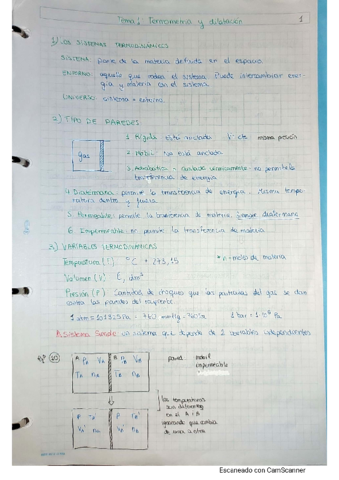 Tema 1 Termometría y dilatación 1
1) LOS SISTEMAS TERMODINÁMICOS
SISTEMA: parte de la materia definida en el espacio.
ENTORNO: aquello que rodea el sistema. Puede intercambiar ener-
gía y materia con el sistema
UNIVERSO: sistema + entorno
2) TIPO DE PAREDES
gas
1. Rígida está anclada V = cte misma presión
2. Móvil no está anclada
3. Adiabática - aislada térmicamente - no permite la
transferencia de energía
4. Diatérmana permite la transferencia de energía. Misma tempe-
ratura dentro y fuera
5. Permeables permite la transferencia de materia,
6. Impermeable no permite la transferencia de materia
3) VARIABLES TERMODINÁMICAS
Temperatura (T) °C + 273,15 * n = moles de materia
Volumen (V) L, dm³
Presión (P) Cantidad de choques que las partículas del gas se dan
contra las paredes del recipiente
1 atm = 101325 Pa = 760 mmHg = 1 bar = 1·10⁵ Pa
A sistema Sencillo un sistema que depende de 2 variables independientes
Ej 20
A PA VA
TA nA
B PB VB
TB nB
pared móvil
impermeable
P TA'
VA' nA
P TB'
VB' nB
las temperaturas
son diferentes
en el A = B
de unas a otras
Escaneado con CamScanner